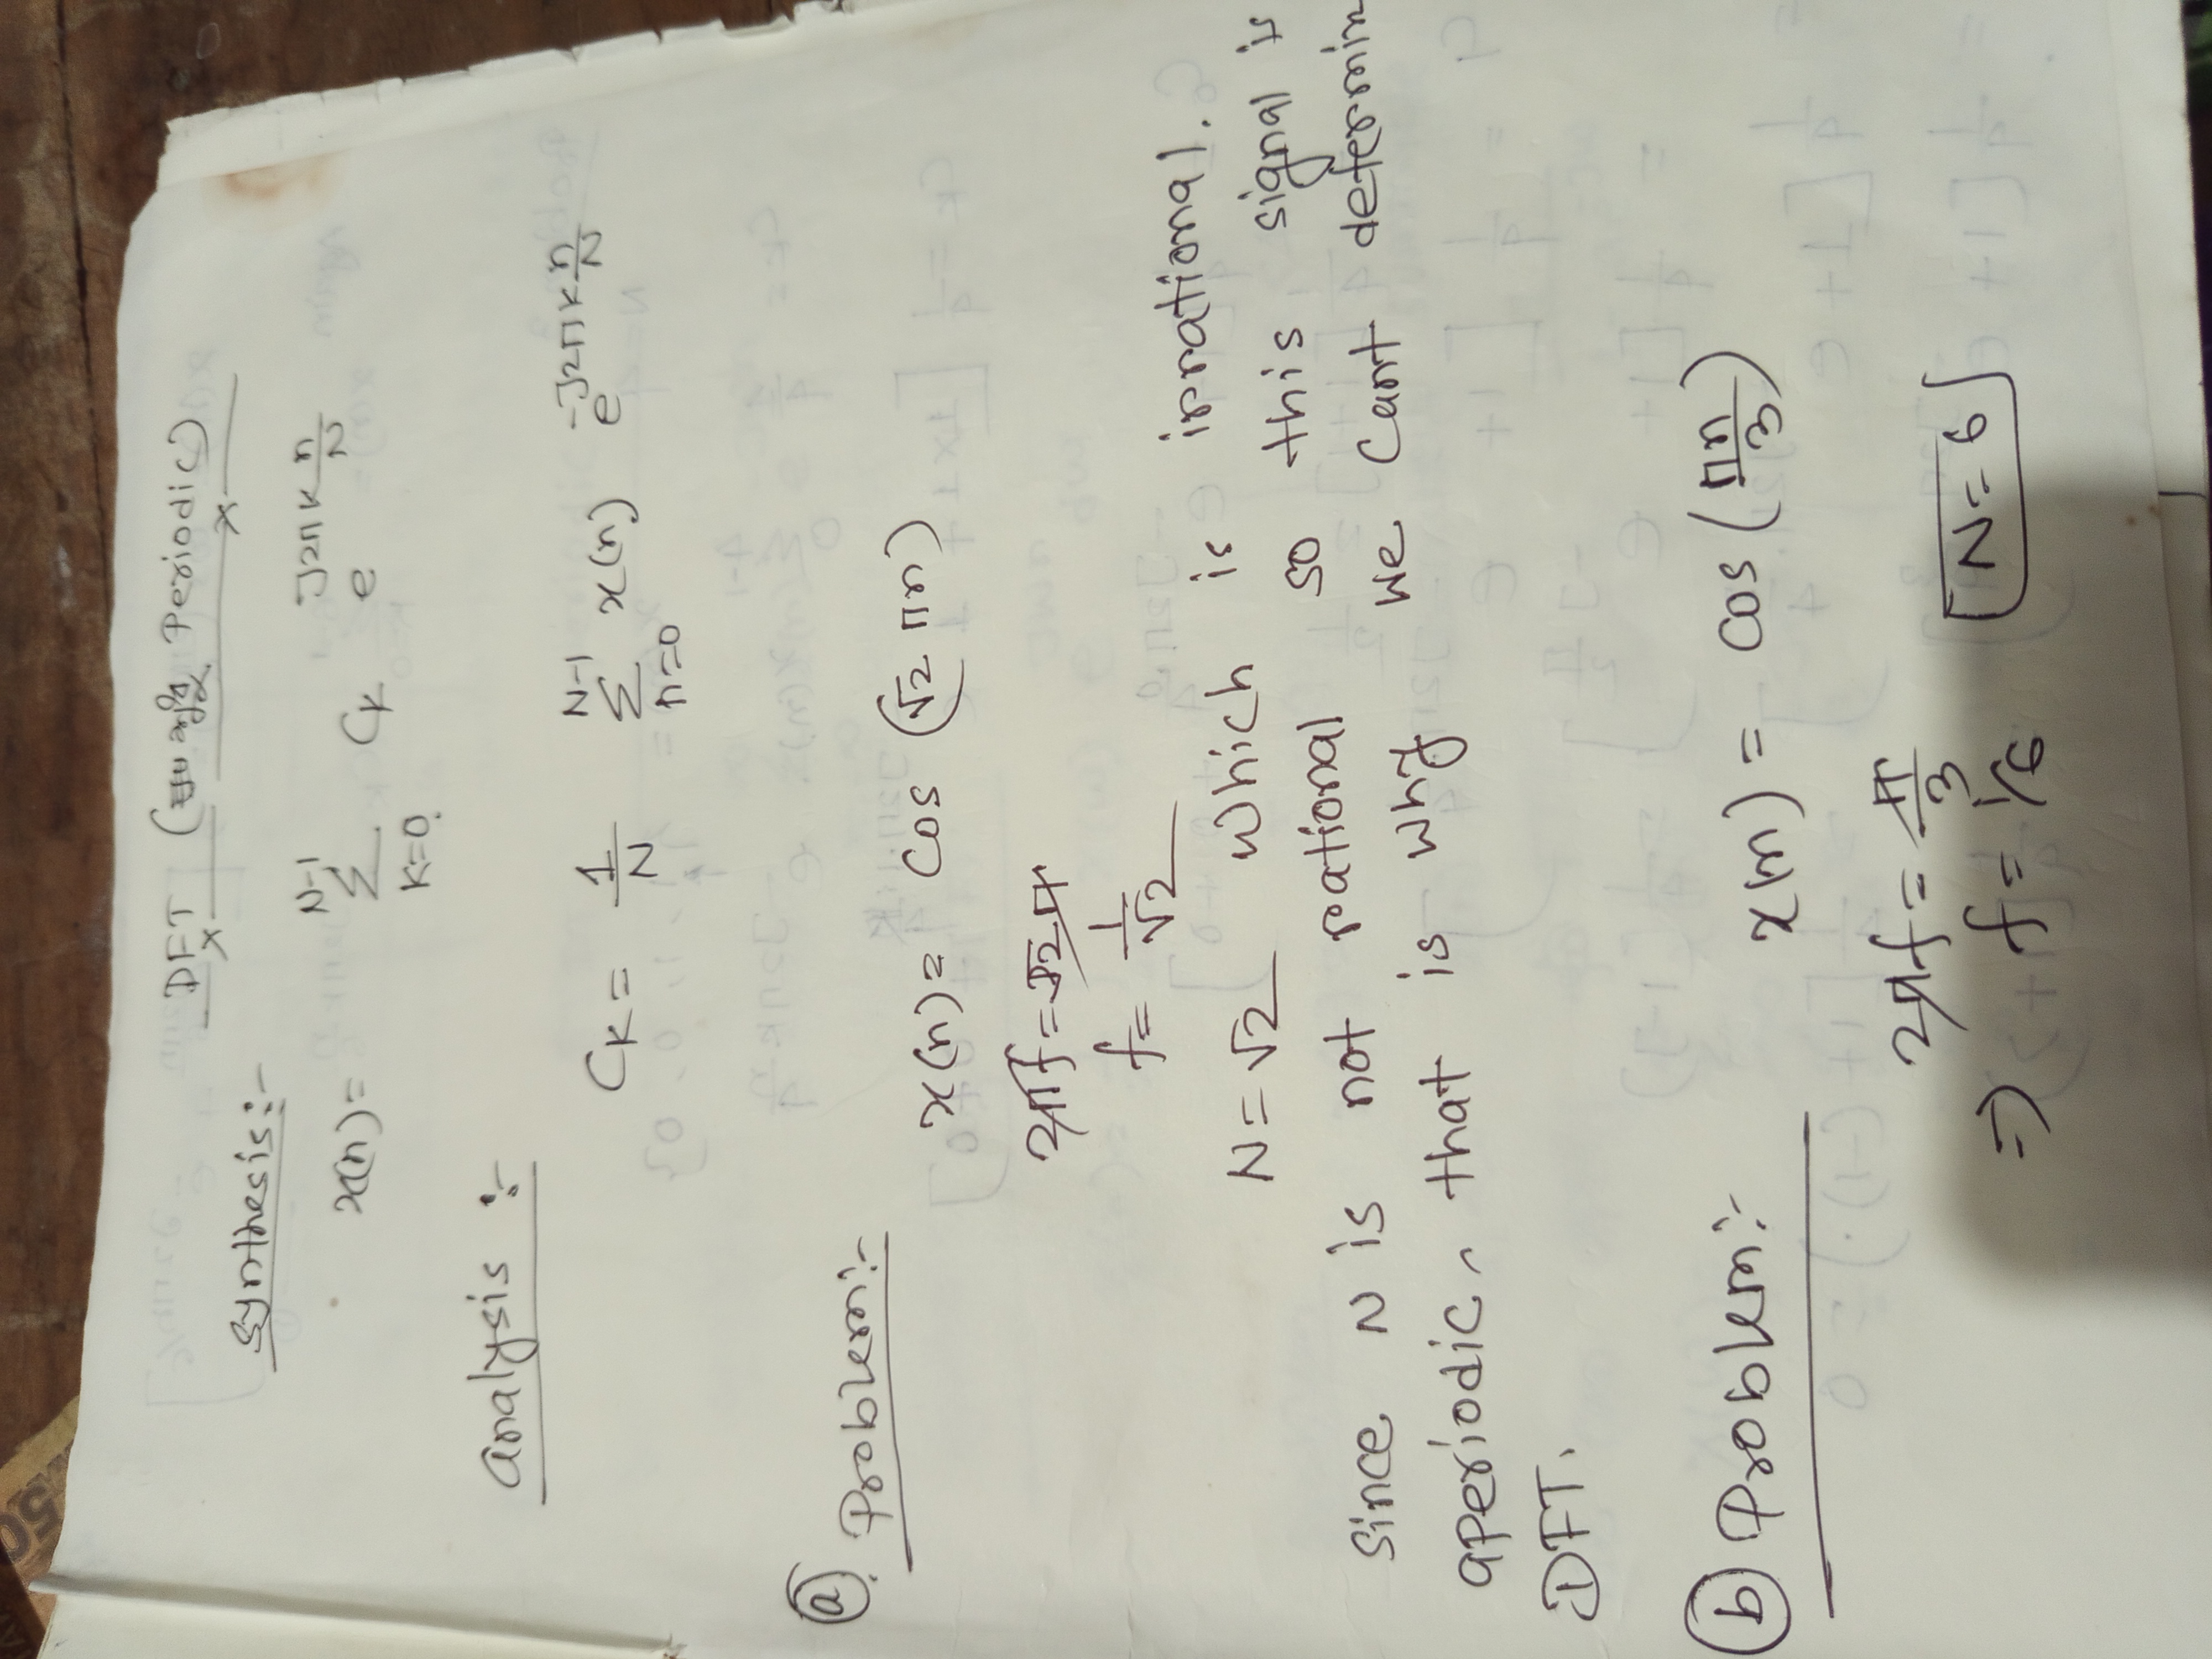 DFT ( Periodic)
Synthesis:-
x(n) = N-1 Σ K=0 CK e^J2πK n/N
analysis :-
CK = 1/N N-1 Σ n=0 x(n) e^-J2πK n/N
ⓐ. Problem:-
x(n) = Cos (√2 πn)
2πf = √2π
f = 1/√2
N = √2 which is irrational.
Since N is not rational so this signal is
aperiodic, that is why we Cant determin
DFT.
ⓑ Problem:- x(n) = Cos (πn/3)
2πf = π/3
⇒ f = 1/6 N = 6